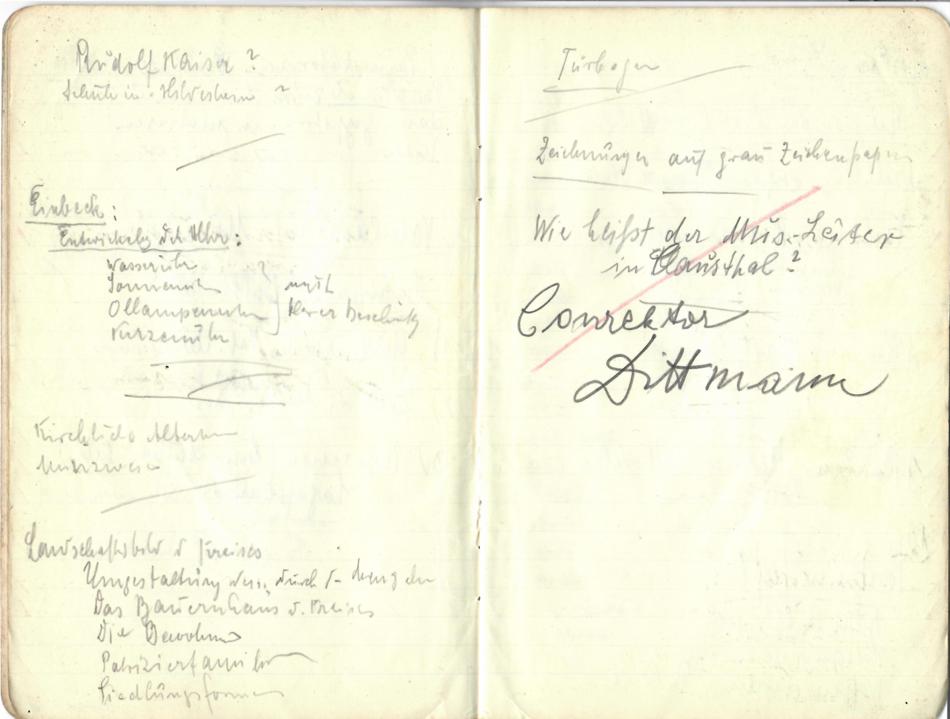 Rudolf Kaiser?
Schule in Hildesheim?
Einbeck:
Entwickelg der Uhr:
Wasseruhr
Sonnenuhr
Öllampenuhr
Kerzenuhr
mit
kurzer Beschreibg
Kirchliche Altertümer
Münzwesen
Landschaftsbild d Kreises
Umgestaltung dess. durch
Das Bauernhaus d. Kreises
Die Bewohner
Patrizierfamilien
Siedlungsformen
Türbogen
Zeichnungen auf grau Zeichenpapier
Wie heißt der Mus.-Leiter
in Clausthal?
Conrektor
Dittmann